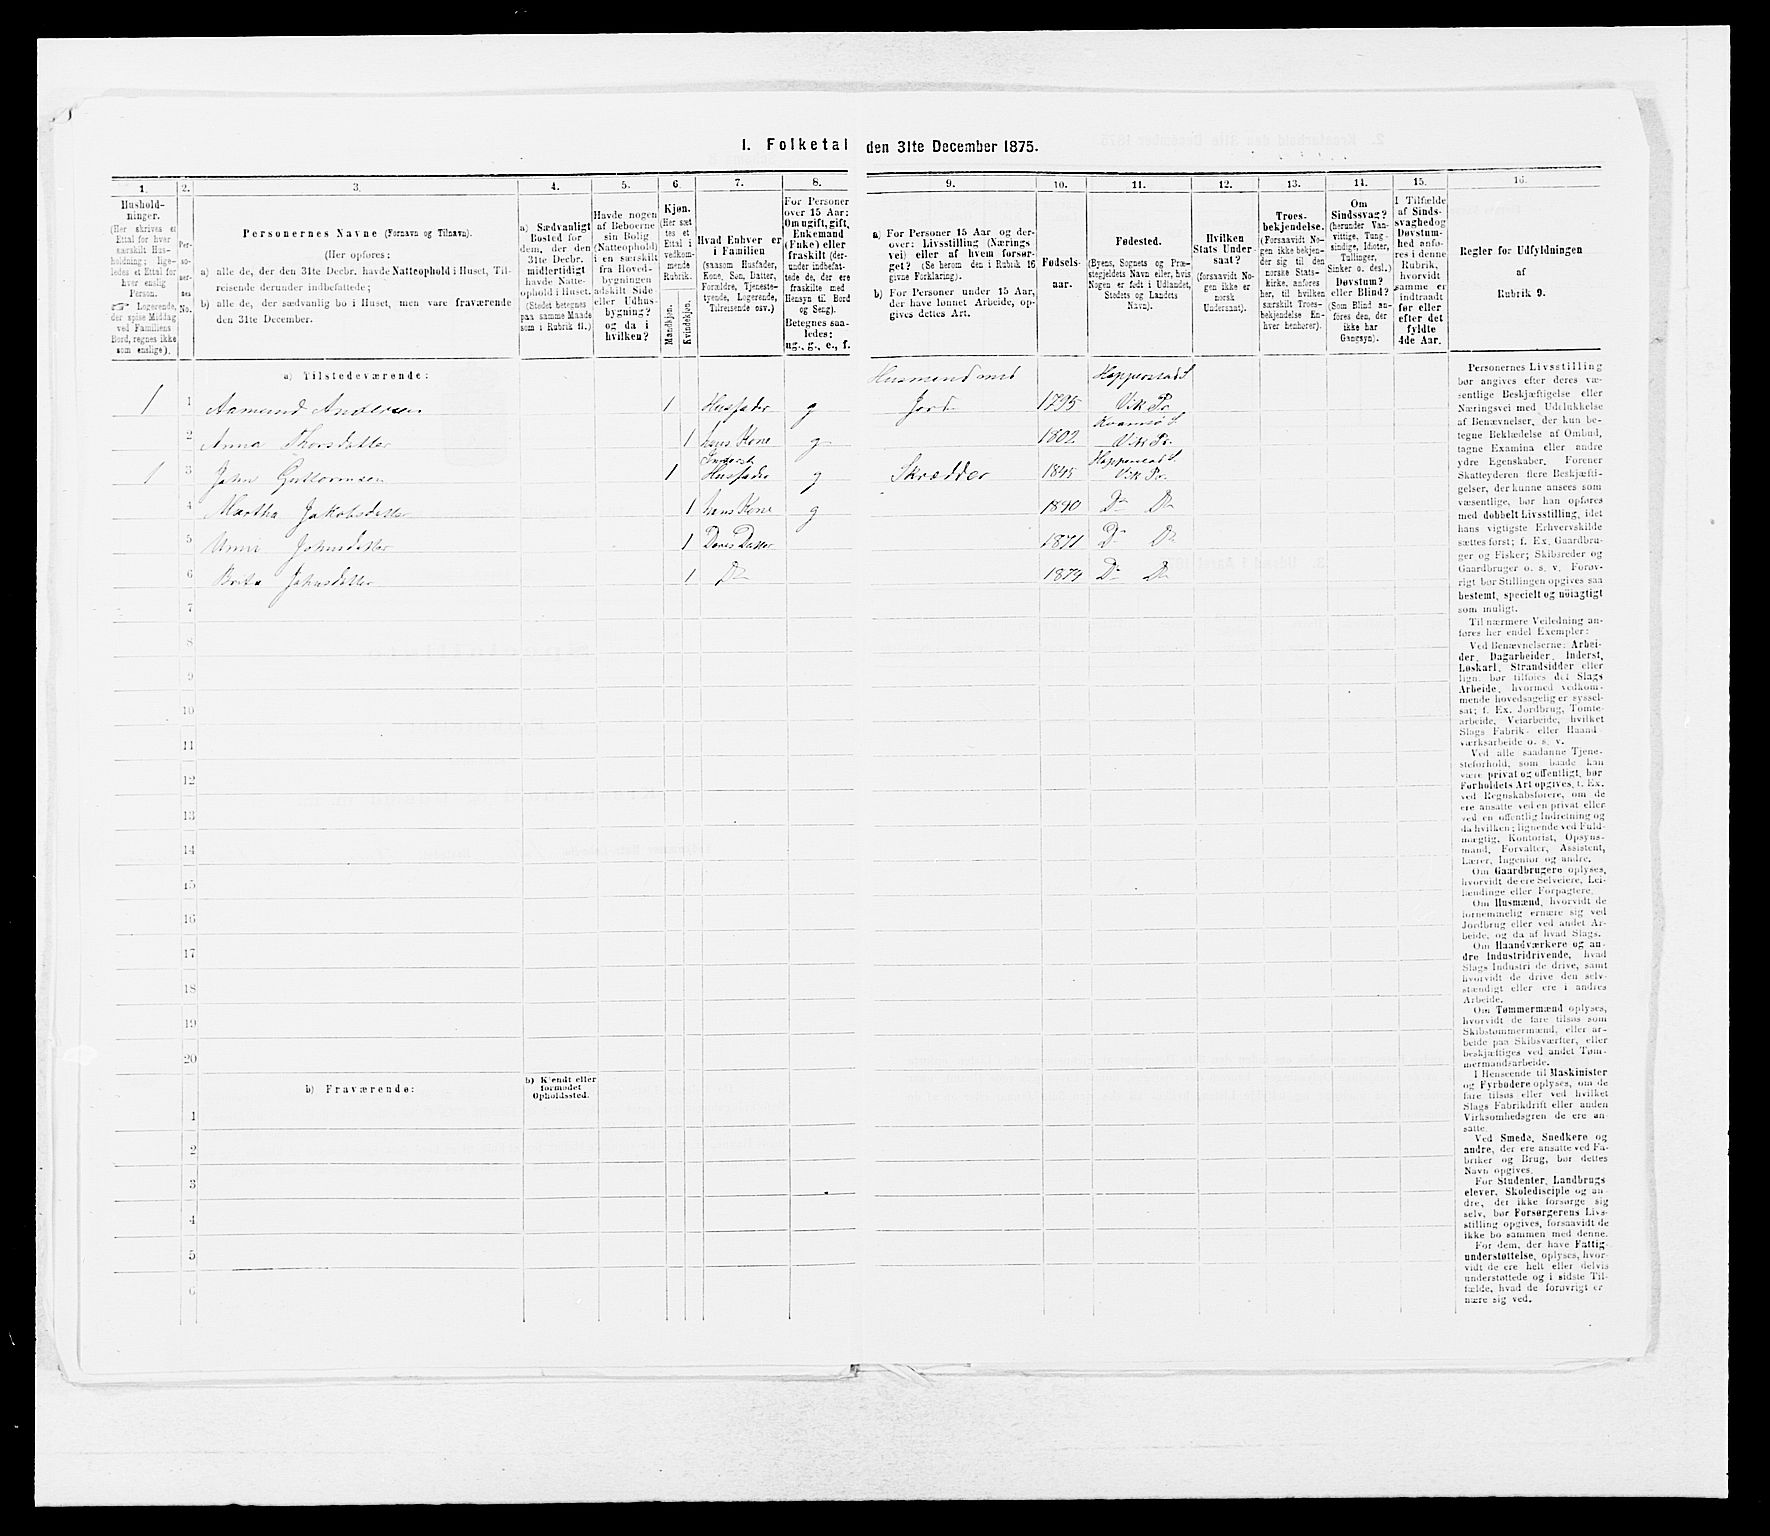 1. Folketal den 31te December 1875.
1. 2. 3. 4. 5. 6. 7. 8. 9. 10. 11. 12. 13. 14. 15. 16.
Hushold-
ninger.
(Her skrives et
Ettal for hver
særskilt Hus-
holdning; lige-
ledes et Ettal for
hver enslig
Person.
☞ Logerende,
der spise Middag
ved Familiens
Bord, regnes ikke
som enslige).
Per-
so-
ner-
nes
No.
Personernes Navne (Fornavn og Tilnavn).
(Her opføres:
a) alle de, der den 31te Decbr. havde Natteophold i Huset, Til-
reisende derunder indbefattede;
b) alle de, der sædvanlig bo i Huset, men vare fraværende
den 31te December.
a) Sædvanligt
Bosted for
dem, der den
31te Decbr.
midlertidigt
havde Natte-
ophold i Huset.
(Stedet betegnes
paa samme Maade
som i Rubrik 11.)
Havde nogen
af Beboerne
sin Bolig
(Natteophold)
i en særskilt
fra Hoved-
bygningen
adskilt Side-
eller Udhus-
bygning?
og da i
hvilken?
Kjøn.
(Her sæt-
tes et
Ettal i
vedkom-
mende
Rubrik.
Mandkjøn.
Kvindekjøn.
Hvad Enhver er
i Familien
(saasom Husfader,
Kone, Søn, Datter,
Forældre, Tjeneste-
tyende, Logerende,
Tilreisende osv.)
For Personer
over 15 Aar:
Om ugift, gift,
Enkemand
(Enke) eller
fraskilt (der-
under indbefat-
tede de, der ere
fraskilte med
Hensyn til Bord
og Seng).
Betegnes saa-
ledes:
ug., g., e., f.
a) For Personer 15 Aar og der-
over: Livsstilling (Nærings-
vei) eller af hvem forsør-
get? (Se herom den i Rubrik 16
givne Forklaring).
b) For Personer under 15 Aar,
der have lønnet Arbeide, op-
gives dettes Art.
Fødsels-
aar.
Fødested.
(Byens, Sognets og Præ-
stegjeldets Navn eller, hvis
Nogen er født i Udlandet,
Stedets og Landets
Navn).
Hvilken
Stats Under-
saat?
(forsaavidt No-
gen ikke er
norsk
Undersaat).
Troes-
bekjendelse.
(Forsaavidt No-
gen ikke bekjen-
der sig til den
norske Stats-
kirke, anføres
her, til hvilken
særskilt Troes-
bekjendelse En-
hver henhører).
Om
Sindssvag?
(herunder Van-
vittige, Tung-
sindige, Idioter,
Tullinger,
Sinker o. desl.)
Døvstum?
eller Blind?
(Som Blind an-
føres den, der
ikke har
Gangsyn).
I Tilfælde
af Sinds-
svaghed og
Døvstum-
hed anfø-
res i denne
Rubrik,
hvorvidt
samme er
indtraadt
før eller
efter det
fyldte
4de Aar.
Regler for Udfyldningen
af
Rubrik 9.
a) Tilstedeværende:
1 1 Aamund Andersen 1 Husfader g Husmand med Jord 1795 Hopperstad S Vik Pr.
2 Anna Thorsdatter 1 hans Kone g 1802 Kvamsø S Vik Pr.
1 3 John Guttormsen 1 Inderst Husfader g Skrædder 1845 Hopperstad S Vik Pr.
4 Martha Jakobsdatter 1 hans Kone g 1840 Do Do
5 Unni Johnsdatter 1 Deres Datter 1871 Do Do
6 Brita Johnsdatter 1 Do 1874 Do Do
7
8
9
10
11
12
13
14
15
16
17
18
19
20
b) Fraværende:
b) Kjendt eller
formodet
Opholdssted.
1
2
3
4
5
6
Personernes Livsstilling
bør angives efter deres væ-
sentlige Beskjæftigelse eller
Næringsvei med Udelukkelse
af Benævnelser, der kun be-
tegne Beklædelse af Ombud,
tagne Examina eller andre
ydre Egenskaber. Forener
Skatteyderen flere Beskjæfti-
gelser, der kunne ansees som
væsentlige, bør han opføres
med dobbelt Livsstilling, idet
hans vigtigste Erhvervskilde
sættes først; f. Ex. Gaardbru-
ger og Fisker; Skibsreder og
Gaardbruger o. s. v. Forøv-
rigt bør Stillingen opgives saa
bestemt, specielt og nöiagtigt
som muligt.
Til nærmere Veiledning an-
føres her endel Exempler:
Ved Benævnelserne: Arbei-
der, Dagarbeider, Inderst,
Løskarl, Strandsidder eller
lign. bør tilføies det Slags
Arbeide, hvormed vedkom-
mende hovedsagelig er syssel-
sat; f. Ex. Jordbrug, Tomte-
arbeide, Veiarbeide, hvilket
Slags Fabrik- eller Haand-
værksarbeide o. s. v.
Ved alle saadanne Tjene-
steforhold, som baade kan
være privat og offentligt, bør
Forholdets Art opgives, f. Ex.
ved Regnskabsførere, om de
ere ansatte ved en privat eller
ved en offentlig Indretning og
da hvilken; lignende ved Fuld-
mægtig, Kontorist, Opsyns-
mand, Forvalter, Assistent,
Lærer, Ingeniør og andre.
Om Gaardbrugere oplyses,
hvorvidt de ere Selveiere, Lei-
lændinge eller Forpagtere.
Om Husmænd, hvorvidt de
fornemmelig ernære sig ved
Jordbrug eller ved andet Ar-
beide, og da af hvad Slags.
Om Haandværkere og an-
dre Industridrivende, hvad
Slags Industri de drive, samt
hvorvidt de drive den selv-
stændigt eller ere i andres
Arbeide.
Om Tømmermænd oplyses,
hvorvidt de fare tilsøs som
Skibstømmermænd, eller ar-
beide paa Skibsværfter, eller
beskjæftiges ved andet Tøm-
mermandsarbeide.
I Henseende til Maskinister
og Fyrbødere oplyses, om de
fare tilsøs eller ved hvilket
Slags Fabrikdrift eller anden
Virksomhedsgren de ere an-
satte.
Ved Smede, Snedkere og
andre, der ere ansatte ved Fa-
briker og Brug, bør dettes
Navn opgives.
For Studenter, Landbrugs-
elever, Skoledisciple og an-
dre, der ikke forsørge sig
selv, bør Forsørgerens Livs-
stilling opgives, forsaavidt de
ikke bo sammen med denne.
For dem, der have Fattig-
understøttelse, oplyses, hvor-
vidt de ere helt eller delvis
understøttede og i sidste Til-
fælde, hvad de forøvrigt er-
nære sig ved.